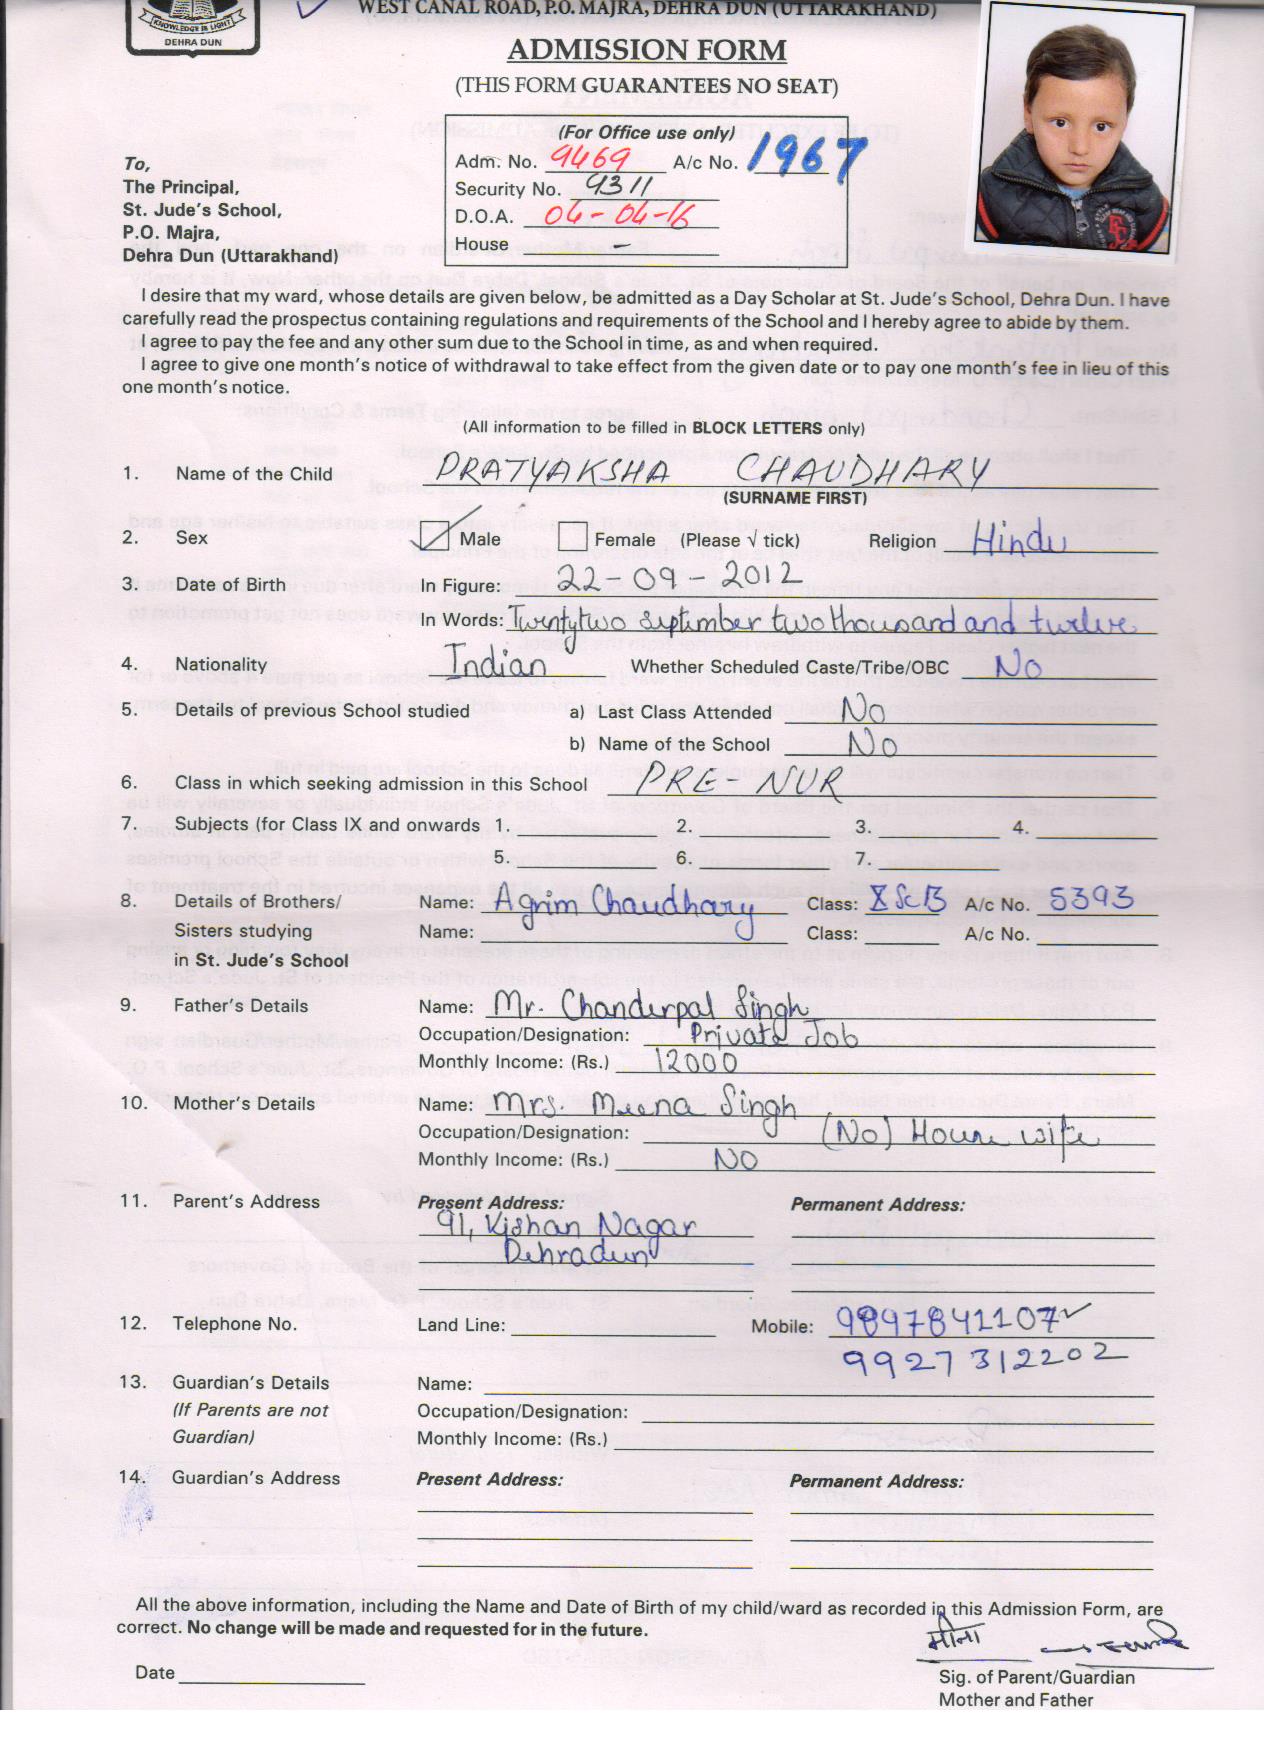 KNOWLEDGE IS LIGHT
DEHRA DUN
WEST CANAL ROAD, P.O. MAJRA, DEHRA DUN (UTTARAKHAND)
ADMISSION FORM
(THIS FORM GUARANTEES NO SEAT)
(For Office use only)
Adm. No. 9469 A/c No. 1967
Security No. 9311
D.O.A. 04-04-16
House –
To,
The Principal,
St. Jude's School,
P.O. Majra,
Dehra Dun (Uttarakhand)
I desire that my ward, whose details are given below, be admitted as a Day Scholar at St. Jude's School, Dehra Dun. I have
carefully read the prospectus containing regulations and requirements of the School and I hereby agree to abide by them.
I agree to pay the fee and any other sum due to the School in time, as and when required.
I agree to give one month's notice of withdrawal to take effect from the given date or to pay one month's fee in lieu of this
one month's notice.
(All information to be filled in BLOCK LETTERS only)
1. Name of the Child PRATYAKSHA CHAUDHARY
(SURNAME FIRST)
2. Sex Male Female (Please √ tick) Religion Hindu
3. Date of Birth In Figure: 22-09-2012
In Words: Twentytwo september two thousand and twelve
4. Nationality Indian Whether Scheduled Caste/Tribe/OBC No
5. Details of previous School studied a) Last Class Attended No
b) Name of the School No
6. Class in which seeking admission in this School PRE-NUR
7. Subjects (for Class IX and onwards 1. 2. 3. 4.
5. 6. 7.
8. Details of Brothers/ Name: Agrim Chaudhary Class: X Sc B A/c No. 5393
Sisters studying Name: Class: A/c No.
in St. Jude's School
9. Father's Details Name: Mr. Chanderpal Singh
Occupation/Designation: Private Job
Monthly Income: (Rs.) 12000
10. Mother's Details Name: Mrs. Meena Singh
Occupation/Designation: (No) House wife
Monthly Income: (Rs.) NO
11. Parent's Address Present Address: Permanent Address:
91, Kishan Nagar
Dehradun
12. Telephone No. Land Line: Mobile: 9897841107
9927312202
13. Guardian's Details Name:
(If Parents are not Occupation/Designation:
Guardian) Monthly Income: (Rs.)
14. Guardian's Address Present Address: Permanent Address:
All the above information, including the Name and Date of Birth of my child/ward as recorded in this Admission Form, are
correct. No change will be made and requested for in the future.
मीना
Date
Sig. of Parent/Guardian
Mother and Father